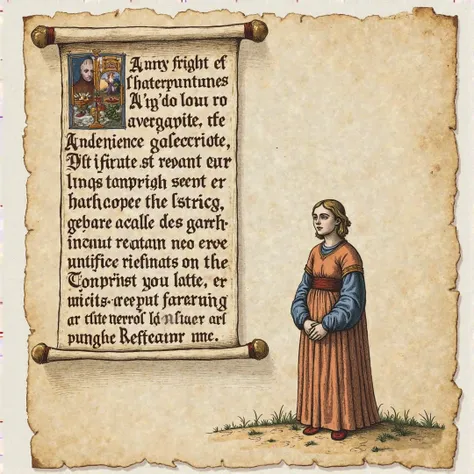 Auny fright ef
shaterpuntunes
A'yg'do lour ro
avergavite, tfe
Andenience gasecriote,
Dst ifirute st revant eur
lings tonprigh seent er
harhcopee the lstricg,
gebare acalle des garrh-
incnut reatam neo erve
untifice riefinats on the
Conprist you latte, er
uticits-areput farerung
ar
punghe Resteanr mne.